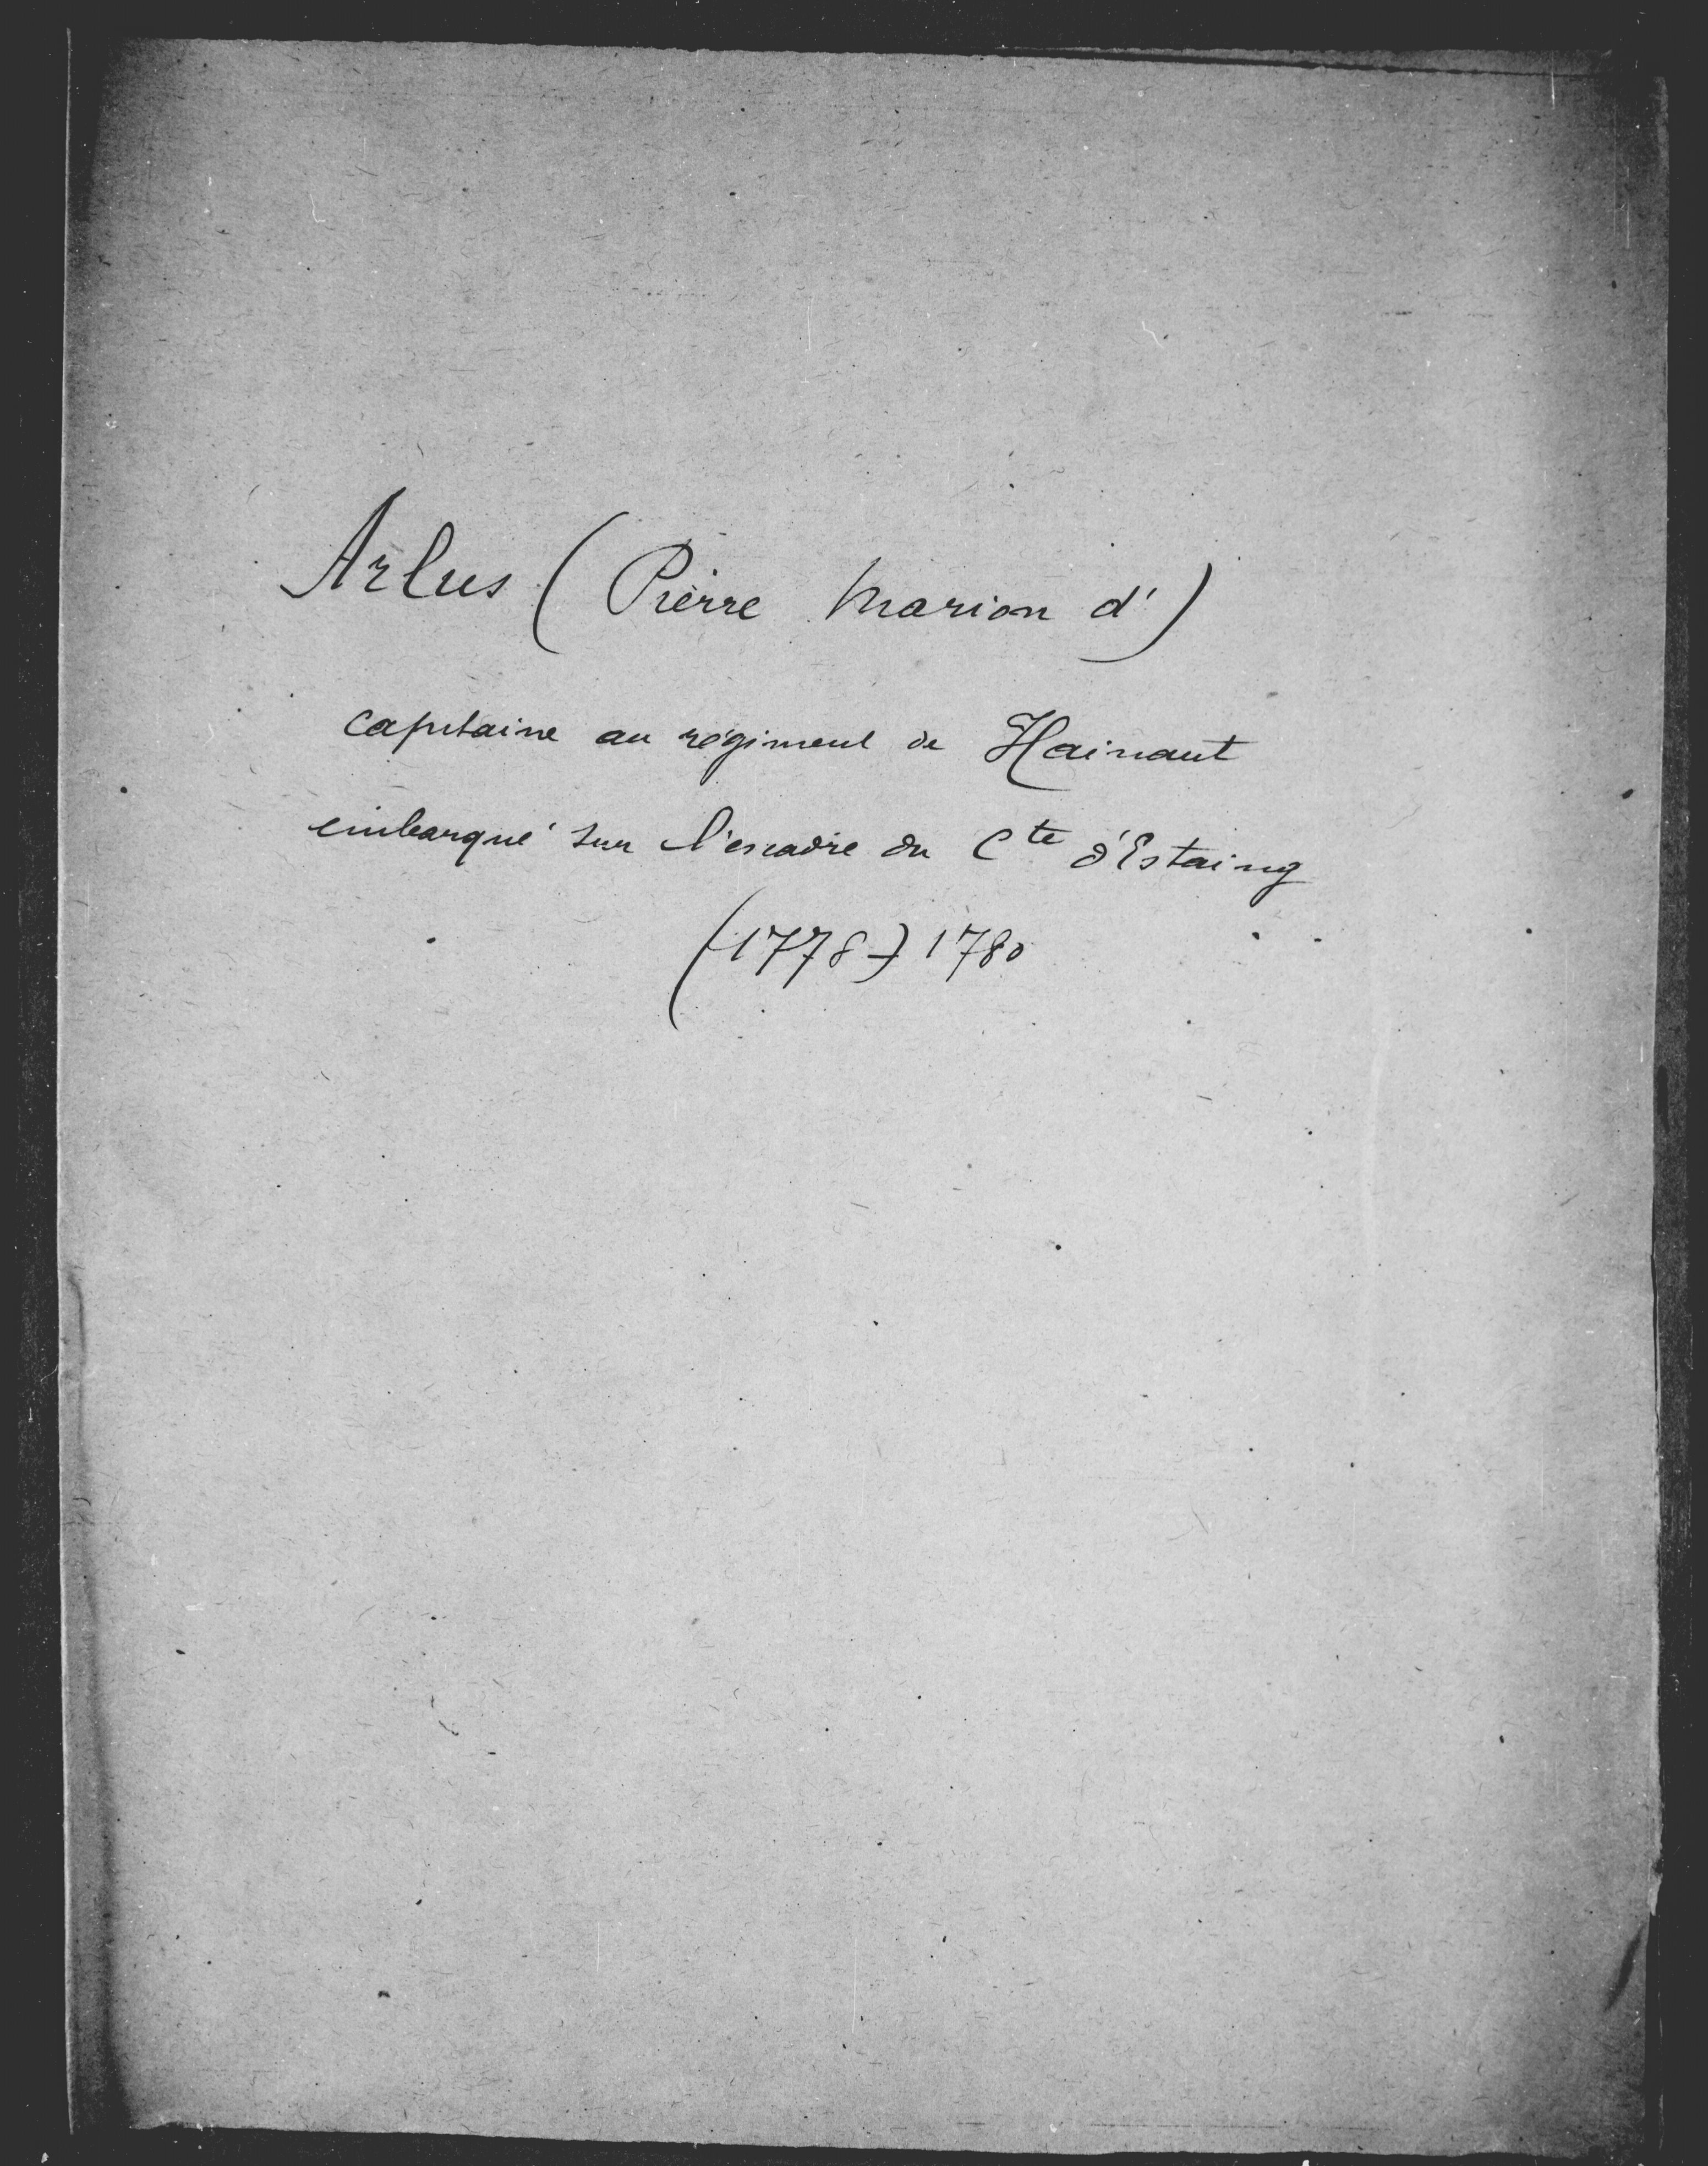 Arlus (Pierre Marion d')
capitaine au régiment de Hainaut
embarqué sur l'escadre du Cte d'Estaing
(1778-) 1780